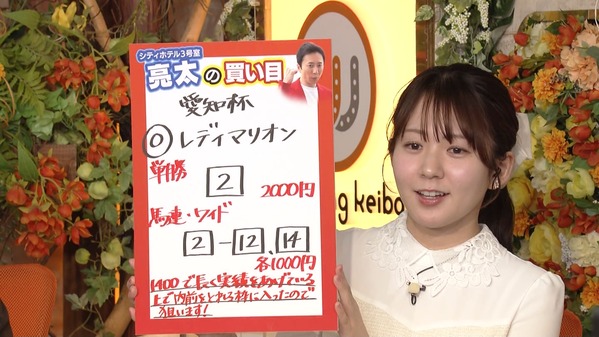 シティホテル3号室
亮太の買い目
愛知杯
◎レディマリオン
単勝
2 2000円
馬連・ワイド
2-12、14
各1000円
1400で長く実績をあげている
上で内前をとれる枠に入ったので
狙います!
g keibo